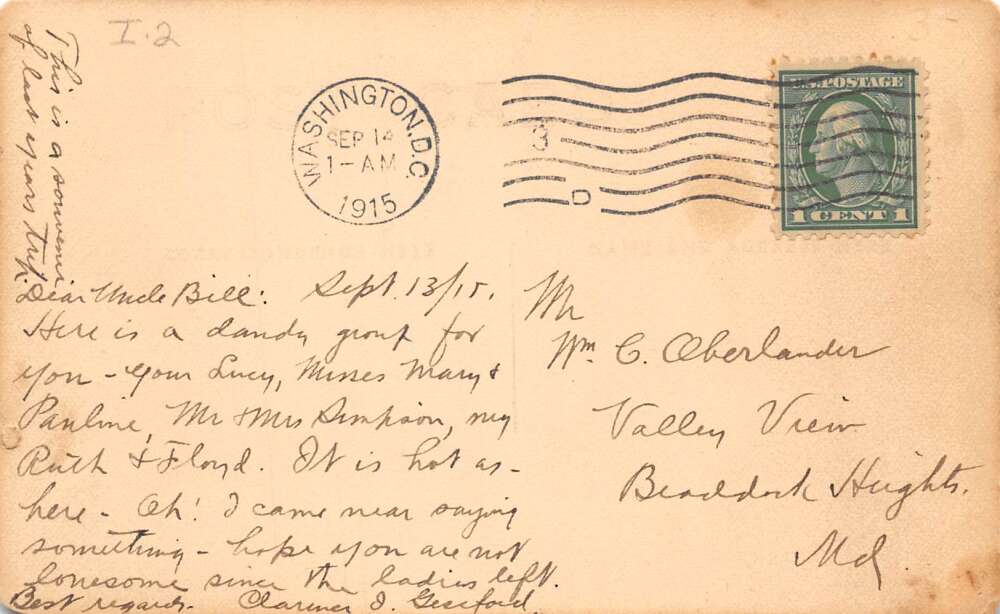 I.2
This is a souvenir
of last years trip.
WASHINGTON, D.C.
SEP 14
1-AM
1915
3
D
U.S. POSTAGE
1 CENT 1
Dear Uncle Bill: Sept. 13/15.
Here is a dandy group for
you - your Lucy, Misses Mary &
Pauline, Mr & Mrs Simpson, my
Ruth & Floyd. It is hot as -
here - Oh! I came near saying
something - hope you are not
lonesome since the ladies left.
Best regards. Clarence I. Gessford
Mr
Wm C. Oberlander
Valley View
Braddock Heights.
Md.